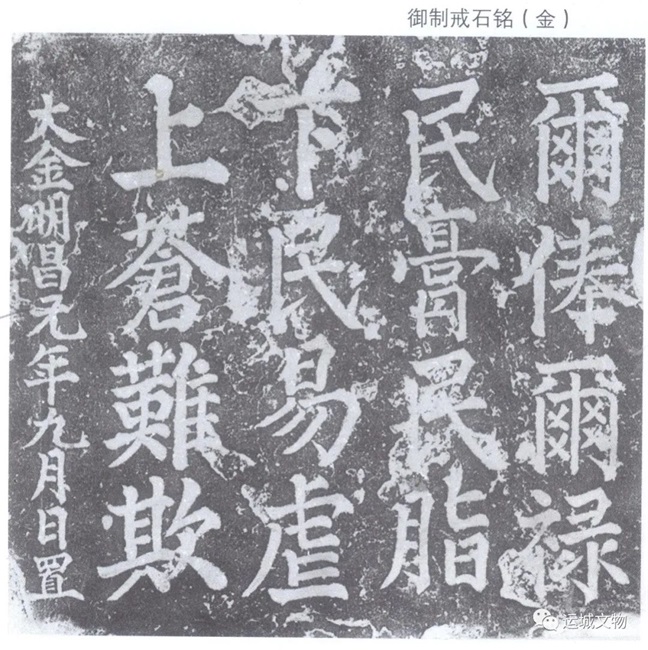 御制戒石铭（金）
爾俸爾禄
民膏民脂
下民易虐
上蒼難欺
大金明昌元年九月日置
运城文物